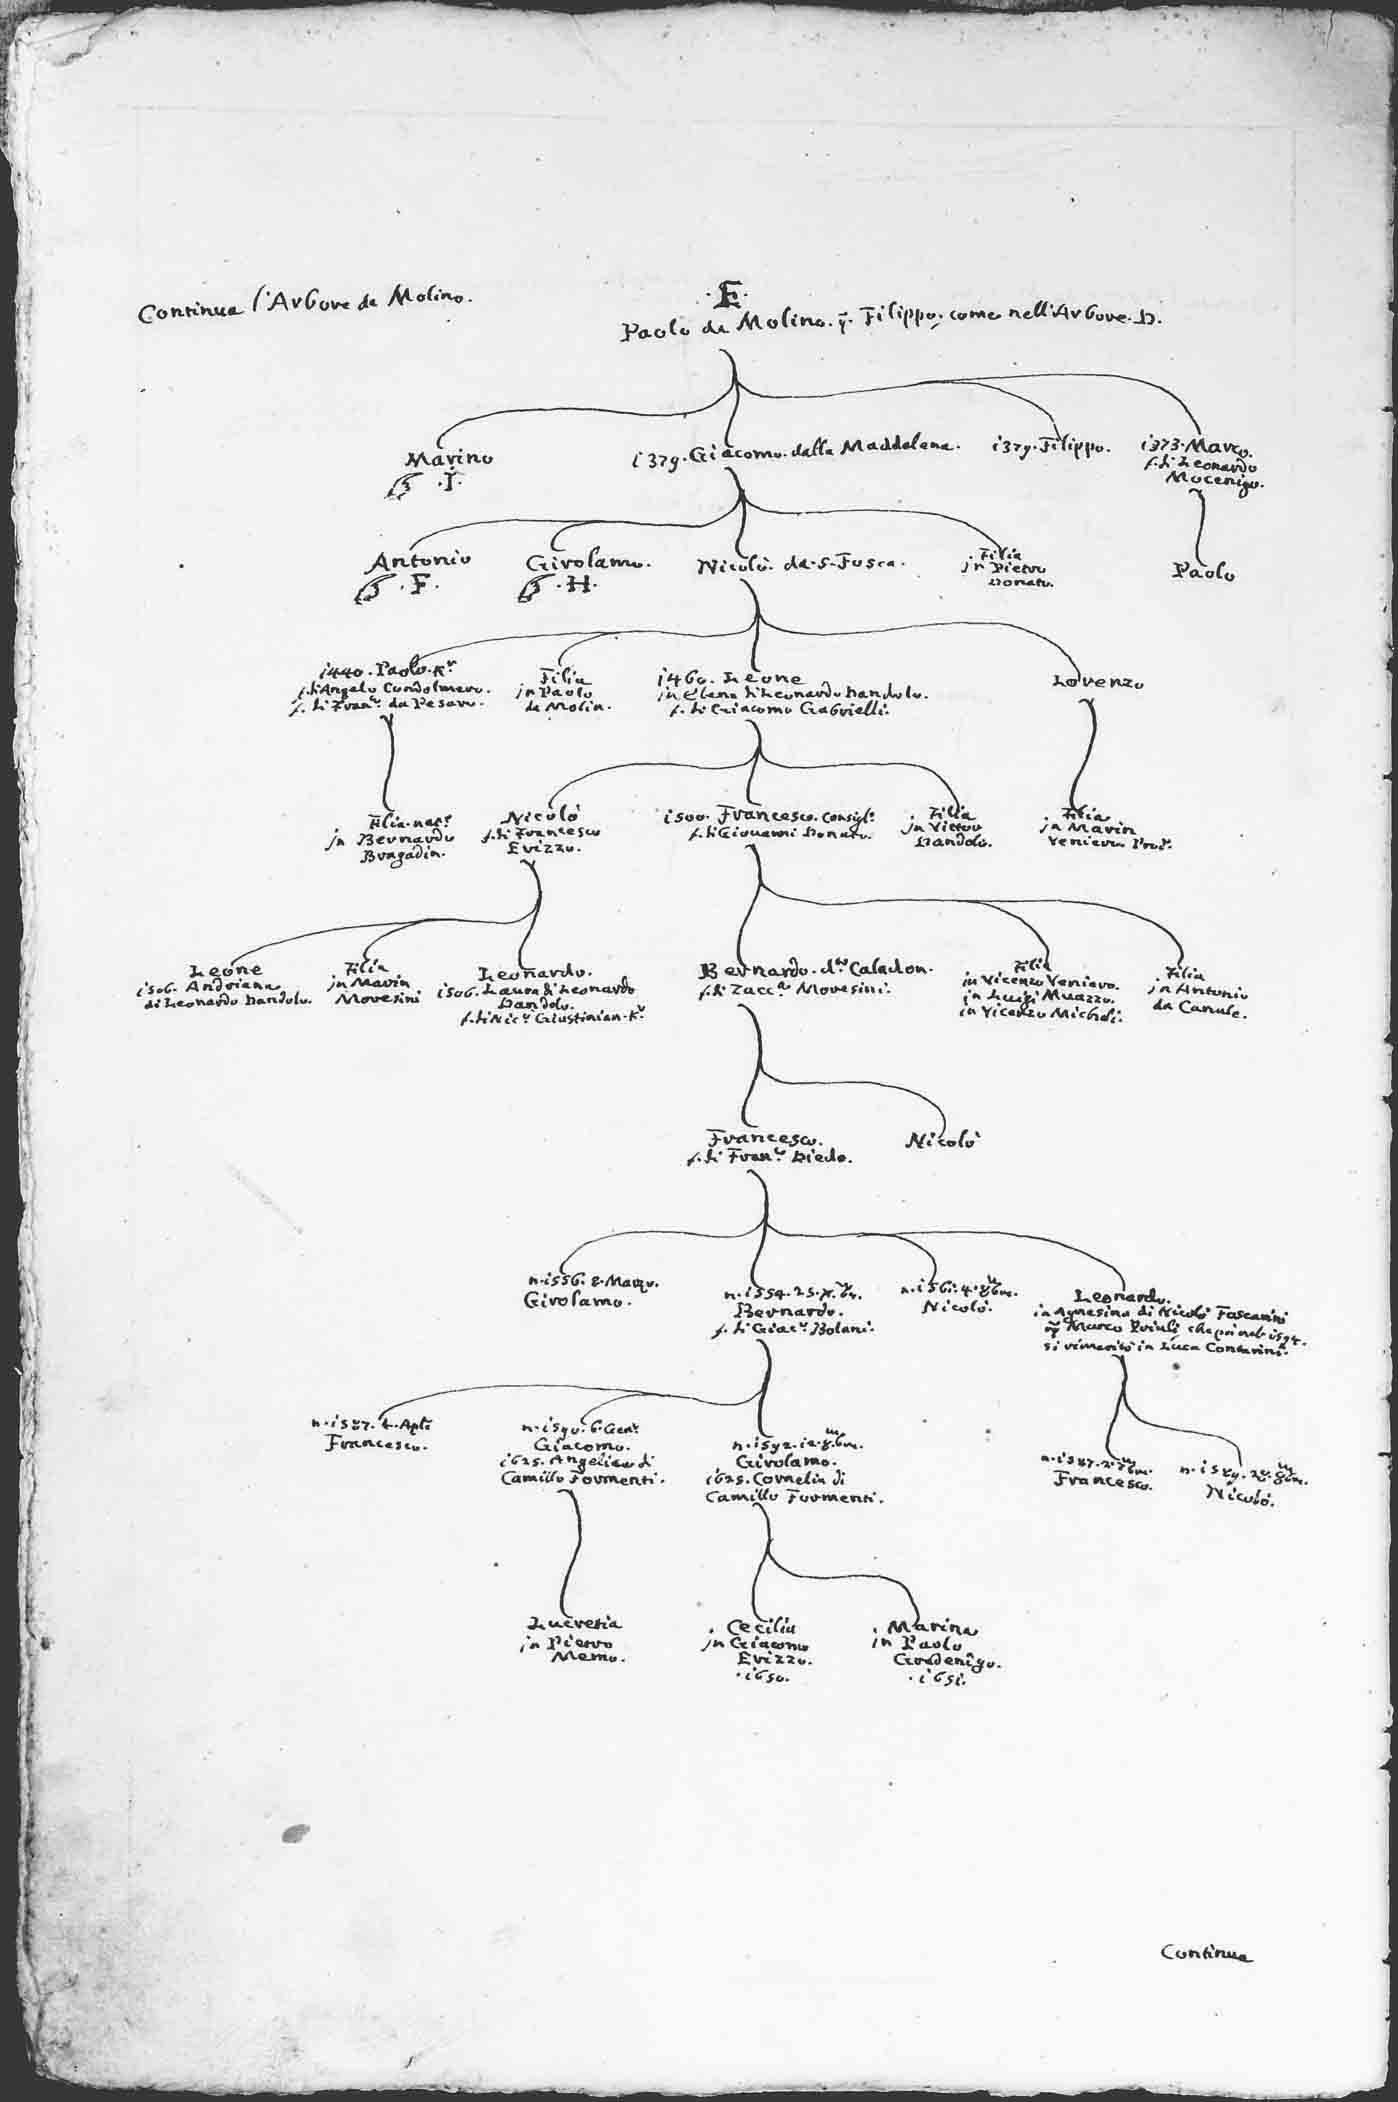 Continua l'Arbore da Molino.
.E.
Paolo da Molino. q. Filippo, come nell'Arbore. D.
Marino
.I.
1379. Giacomo. dalla Maddalena.
1379. Filippo.
1373. Marco.
f. di Leonardo
Mocenigo.
Antonio
.F.
Girolamo.
.H.
Nicolò. da. S. Fosca.
Filia
in Pietro
Donato.
Paolo
1440. Paolo. Kr
f. di Angelo Condolmero.
f. di Franco da Pesaro.
Filia
in Paolo
da Molin.
1460. Leone
in Elena di Leonardo Dandolo.
f. di Giacomo Gabrielli.
Lorenzo
Filia. natle
in Bernardo
Bragadin.
Nicolò
f. di Francesco
Erizzo.
1500. Francesco. Consigr
f. di Giovanni Donato.
Filia
in Vittor
Dandolo.
Filia
in Marin
Venier Procr.
Leone
1506. Andriana
di Leonardo Dandolo.
Filia
in Marin
Moresini
Leonardo.
1506. Laura di Leonardo
Dandolo.
f. di Nico Giustinian. Kr
Bernardo. do Caladon.
f. di Zacca Moresini.
Filia
in Vicenzo Veniero.
in Luigi Muazzo.
in Vicenzo Michiel.
Filia
in Antonio
da Canale.
Francesco.
f. di Franco Diedo.
Nicolò
n. 1556. 8. Marzo.
Girolamo.
n. 1554. 25. Xbre.
Bernardo.
f. di Giaco Bolani.
n. 1561. 4. 8bre.
Nicolò.
Leonardo.
in Agnesina di Nicolò Foscarini
Marco Priuli che poi nel 1594.
si rimaritò in Luca Contarini.
n. 1587. 4. Aple
Francesco.
n. 1590. 6. Genr
Giacomo.
1625. Angelica di
Camillo Formenti.
n. 1592. 12. 8bre.
Girolamo.
1625. Cornelia di
Camillo Formenti.
n. 1587. 2. 7bre.
Francesco.
n. 1589. 28. 8bre.
Nicolò.
Lucretia
in Pietro
Memo.
Cecilia
in Giacomo
Erizzo.
.1650.
Marina
in Paolo
Gradenigo.
.1651.
Continua